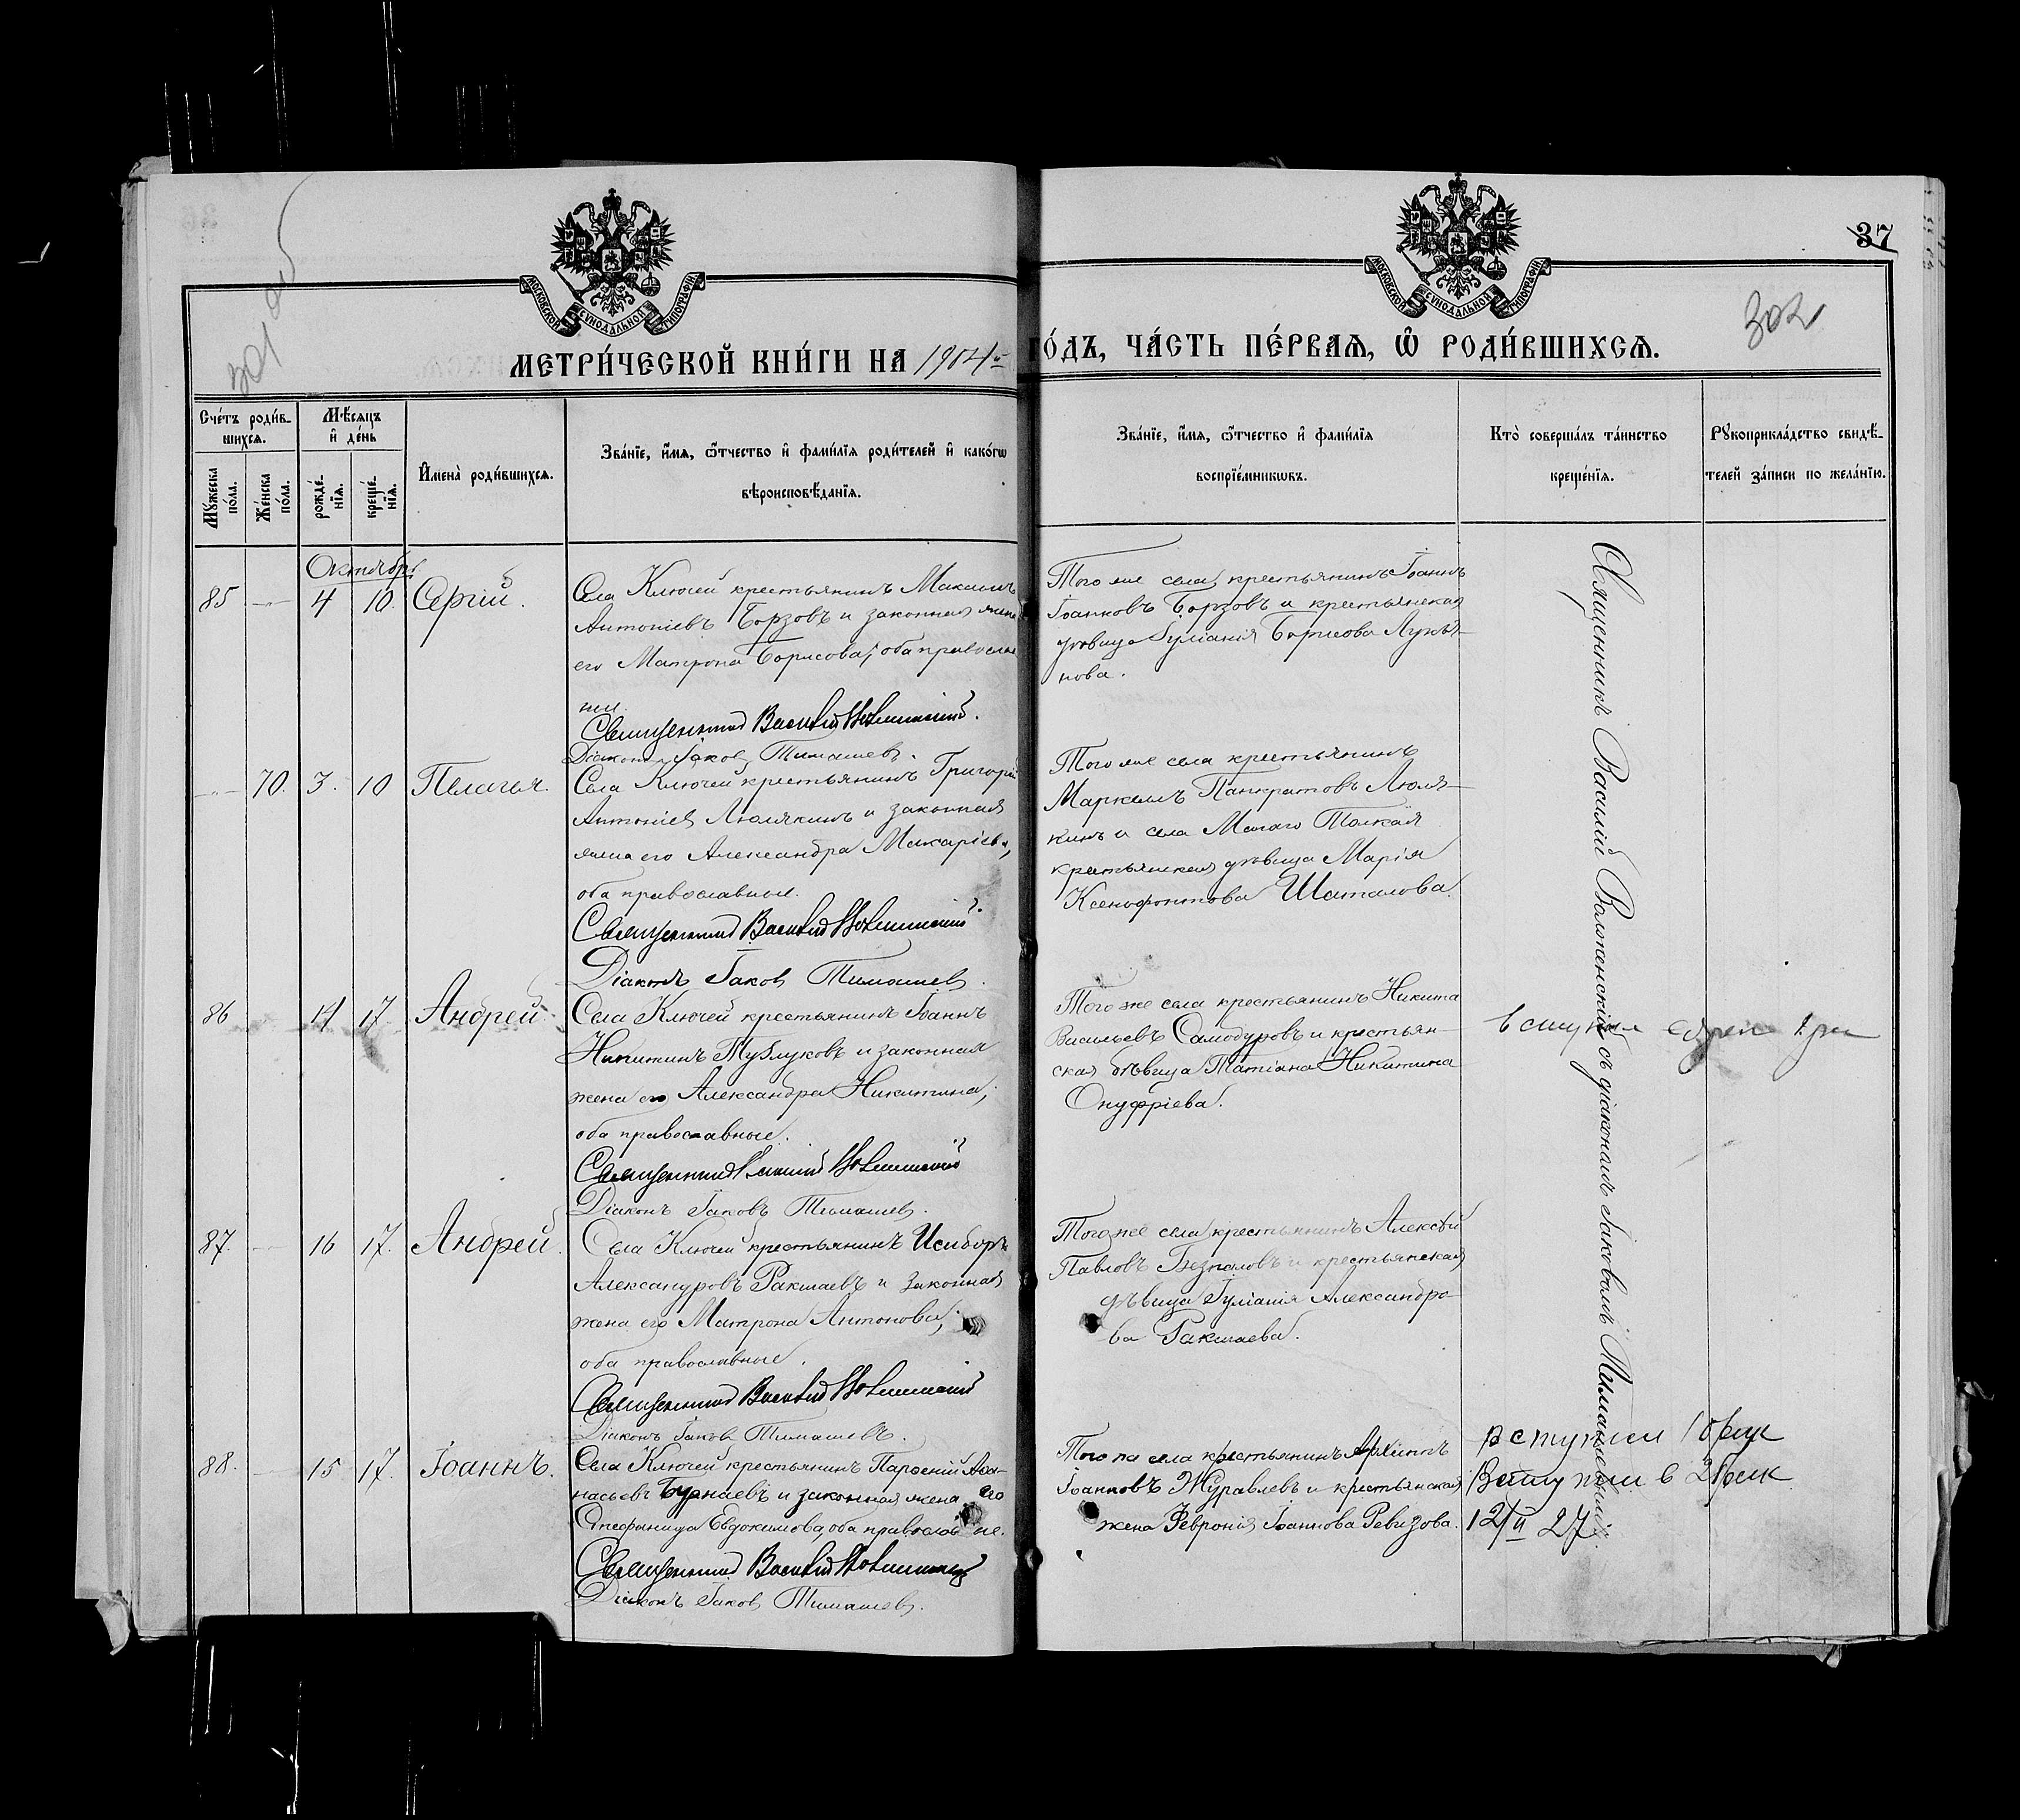 37
301 об
302
МОСКОВСКОЙ СУНОДАЛЬНОЙ ТИПОГРАФІИ
МОСКОВСКОЙ СУНОДАЛЬНОЙ ТИПОГРАФІИ
МЕТРИ́ЧЕСКОЙ КНИ́ГИ НА 1904й ГО́ДЪ, ЧА́СТЬ ПЕ́РВАѦ, Ѡ҆ РОДИ́ВШИХСѦ.
Сче́тъ роди́в-
шихсѧ.
Мѣ́сѧцъ
и҆ де́нь
Мꙋ́жеска
по́ла.
Же́нска
по́ла.
рожде́-
нїѧ.
креще́-
нїѧ.
И҆мена̀ роди́вшихсѧ.
Зва́нїе, и҆́мѧ, ѻ҆́тчество и҆ фами́лїѧ роди́телей и҆ како́гѡ
вѣроисповѣ́данїѧ.
Зва́нїе, и҆́мѧ, ѻ҆́тчество и҆ фами́лїѧ
воспрїе́мникѡвъ.
Кто̀ соверша́лъ та́инство
креще́нїѧ.
Рꙋкоприкла́дство свидѣ́-
телей за́писи по жела́нїю.
Октябрь
85 — 4 10. Сергій.
Села Ключей крестьянинъ Максимъ
Антоніевъ Борзовъ и законная жена
его Матрона Борисова; оба православ
ные.
Священникъ Василій
Діаконъ Іаковъ Тимашевъ.
Того же села крестьянинъ Іоаннъ
Іоанновъ Борзовъ и крестьянская
дѣвица Іуліанія Борисова Лукья-
нова.
— 70. 3. 10 Пелагія.
Села Ключей крестьянинъ Григорій
Антоніевъ Люлякинъ и законная
жена его Александра Макаріева,
оба православные.
Священникъ Василій
Діаконъ Іаковъ Тимашевъ.
Того же села крестьянинъ
Маркеллъ Панкратовъ Люля-
кинъ и села Малаго Толкая
крестьянская дѣвица Марія
Ксенофонтова Шаталова.
86 14 17. Андрей.
Села Ключей крестьянинъ Іоаннъ
Никитинъ Тузлуковъ и законная
жена его Александра Никитина;
оба православные.
Священникъ Василій
Діаконъ Іаковъ Тимашевъ.
Того же села крестьянинъ Никита
Васильевъ Самодуровъ и крестьян-
ская дѣвица Татіана Никитина
Онуфріева.
87. — 16 17. Андрей.
Села Ключей крестьянинъ Исидоръ
Александровъ Ракшаевъ и законная
жена его Матрона Антонова;
оба православные.
Священникъ Василій
Діаконъ Іаковъ Тимашевъ.
Того же села крестьянинъ Алексѣй
Павловъ Безпаловъ и крестьянская
дѣвица Іуліанія Александро-
ва Ракшаева.
88. — 15 17. Іоаннъ.
Села Ключей крестьянинъ Парѳеній Аѳа-
насьевъ Бурнаевъ и законная жена его
Стефанида Евдокимова, оба православные.
Священникъ Василій
Діаконъ Іаковъ Тимашевъ.
Того же села крестьянинъ Архиппъ
Іоанновъ Журавлевъ и крестьянская
жена Февронія Іоаннова Ревизова.
Священникъ Василій съ діакономъ Іаковомъ Тимашевымъ.
вступил
вступил 1 брак
Вступил в 2 брак
12/II 27